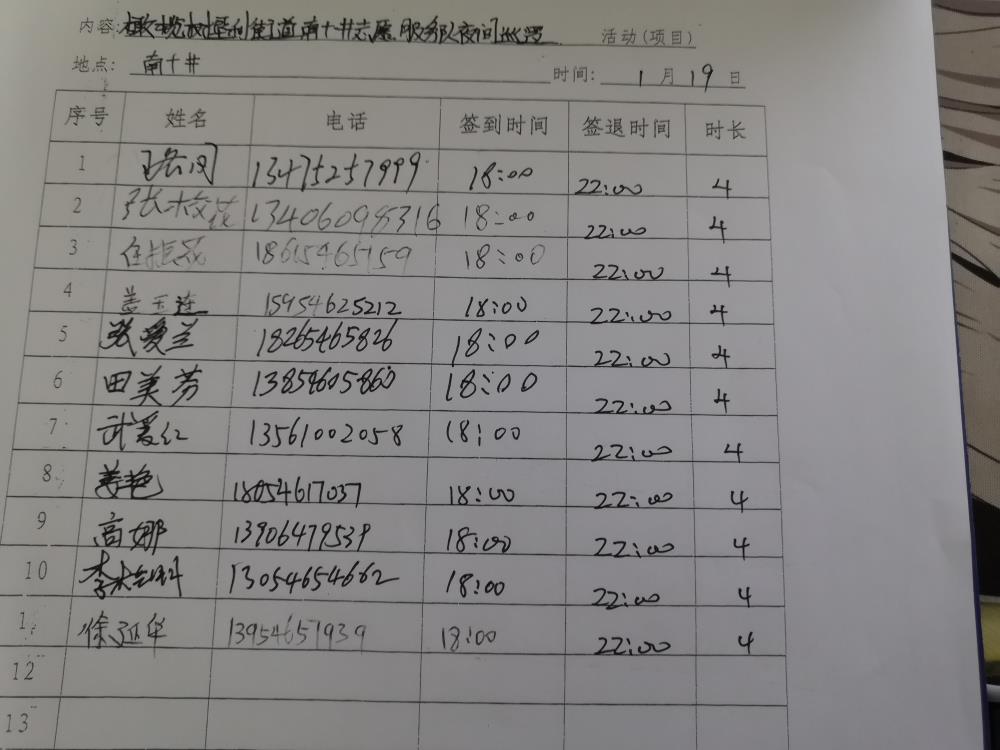 内容: 橄榄树垦利街道南十井志愿服务队夜间巡逻 活动(项目)
地点: 南十井 时间: 1月19日
序号 姓名 电话 签到时间 签退时间 时长
1 13475257999 18:00 22:00 4
2 张校花 13406098316 18:00 22:00 4
3 18615465159 18:00 22:00 4
4 姜玉连 15954625212 18:00 22:00 4
5 张爱兰 18265465826 18:00 22:00 4
6 田美芳 13854605860 18:00 22:00 4
7 武爱红 13561002058 18:00 22:00 4
8 姜艳 18054617037 18:00 22:00 4
9 高娜 13906479539 18:00 22:00 4
10 李 13054654662 18:00 22:00 4
1 徐延华 13954657939 18:00 22:00 4
12
13